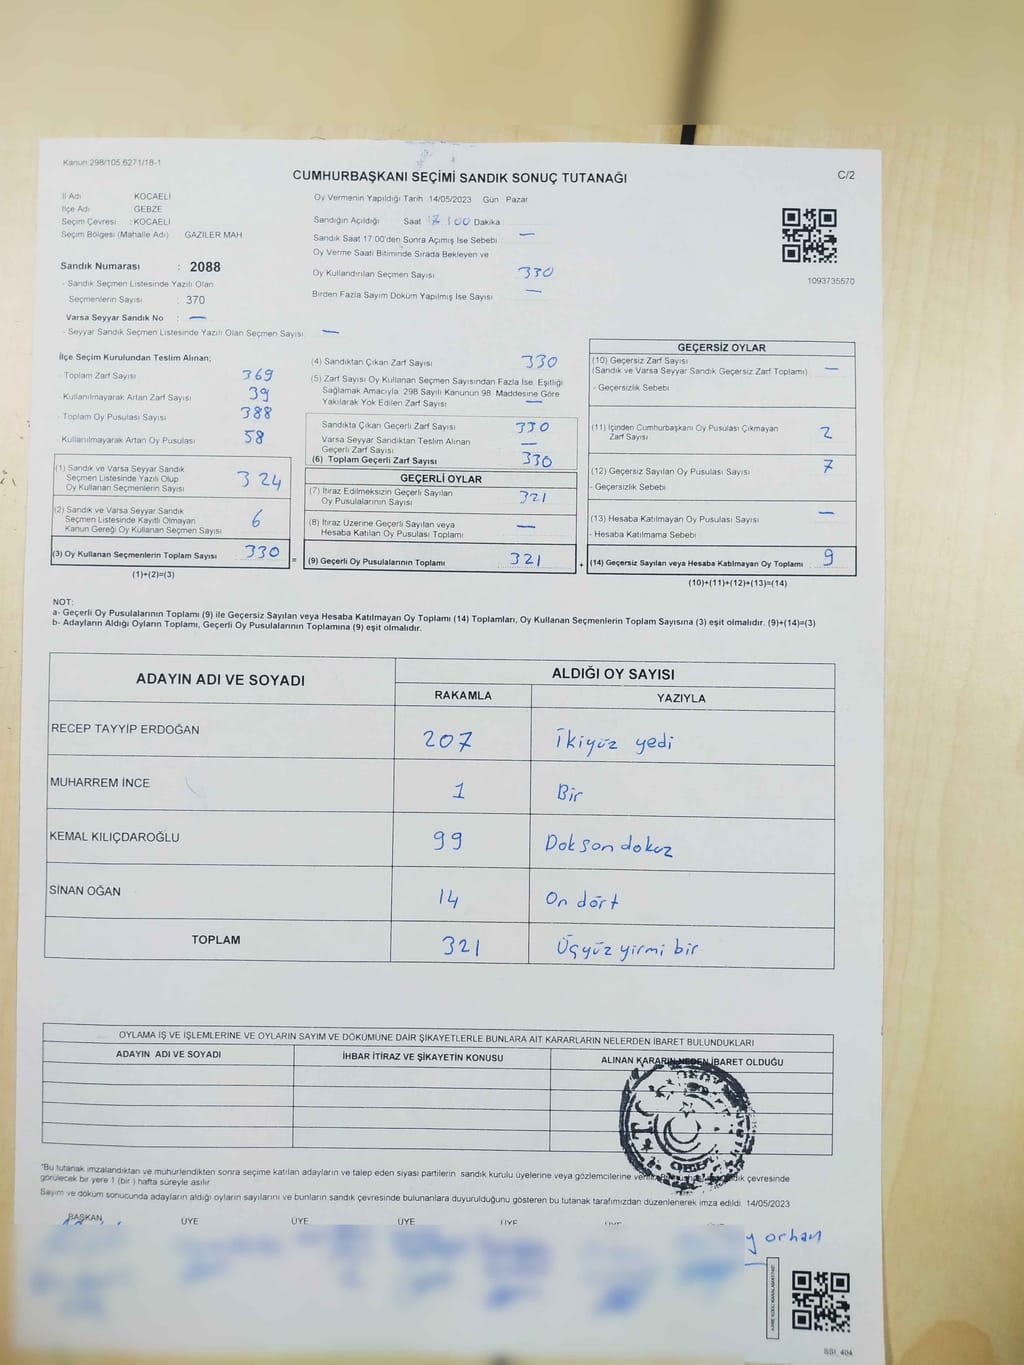 Kanun 298/105 6271/18-1
CUMHURBAŞKANI SEÇİMİ SANDIK SONUÇ TUTANAĞI
C/2
İl Adı KOCAELİ
İlçe Adı GEBZE
Seçim Çevresi : KOCAELİ
Seçim Bölgesi (Mahalle Adı) GAZILER MAH
Sandık Numarası : 2088
- Sandık Seçmen Listesinde Yazılı Olan
Seçmenlerin Sayısı : 370
Varsa Seyyar Sandık No : —
- Seyyar Sandık Seçmen Listesinde Yazılı Olan Seçmen Sayısı —
Oy Vermenin Yapıldığı Tarih 14/05/2023 Gün Pazar
Sandığın Açıldığı Saat Dakika
Sandık Saat 17.00'den Sonra Açımış İse Sebebi —
Oy Verme Saati Bitiminde Sırada Bekleyen ve
Oy Kullandırılan Seçmen Sayısı 330
Birden Fazla Sayım Döküm Yapılmış İse Sayısı —
1093735570
İlçe Seçim Kurulundan Teslim Alınan;
- Toplam Zarf Sayısı 369
- Kullanılmayarak Artan Zarf Sayısı 39
- Toplam Oy Pusulası Sayısı 388
- Kullanılmayarak Artan Oy Pusulası 58
(1) Sandık ve Varsa Seyyar Sandık
Seçmen Listesinde Yazılı Olup
Oy Kullanan Seçmenlerin Sayısı 324
(2) Sandık ve Varsa Seyyar Sandık
Seçmen Listesinde Kayıtlı Olmayan
Kanun Gereği Oy Kullanan Seçmen Sayısı 6
(3) Oy Kullanan Seçmenlerin Toplam Sayısı 330
(1)+(2)=(3)
=
(4) Sandıktan Çıkan Zarf Sayısı 330
(5) Zarf Sayısı Oy Kullanan Seçmen Sayısından Fazla İse, Eşitliği
Sağlamak Amacıyla 298 Sayılı Kanunun 98. Maddesine Göre
Yakılarak Yok Edilen Zarf Sayısı —
Sandıkta Çıkan Geçerli Zarf Sayısı 330
Varsa Seyyar Sandıktan Teslim Alınan
Geçerli Zarf Sayısı —
(6) Toplam Geçerli Zarf Sayısı 330
GEÇERLİ OYLAR
(7) İtiraz Edilmeksizin Geçerli Sayılan
Oy Pusulalarının Sayısı 321
(8) İtiraz Üzerine Geçerli Sayılan veya
Hesaba Katılan Oy Pusulası Toplamı —
(9) Geçerli Oy Pusulalarının Toplamı 321
+
GEÇERSİZ OYLAR
(10) Geçersiz Zarf Sayısı
(Sandık ve Varsa Seyyar Sandık Geçersiz Zarf Toplamı) —
- Geçersizlik Sebebi
(11) İçinden Cumhurbaşkanı Oy Pusulası Çıkmayan
Zarf Sayısı 2
(12) Geçersiz Sayılan Oy Pusulası Sayısı 7
- Geçersizlik Sebebi
(13) Hesaba Katılmayan Oy Pusulası Sayısı —
- Hesaba Katılmama Sebebi
(14) Geçersiz Sayılan veya Hesaba Katılmayan Oy Toplamı 9
(10)+(11)+(12)+(13)=(14)
NOT:
a- Geçerli Oy Pusulalarının Toplamı (9) ile Geçersiz Sayılan veya Hesaba Katılmayan Oy Toplamı (14) Toplamları, Oy Kullanan Seçmenlerin Toplam Sayısına (3) eşit olmalıdır. (9)+(14)=(3)
b- Adayların Aldığı Oyların Toplamı, Geçerli Oy Pusulalarının Toplamına (9) eşit olmalıdır.
ADAYIN ADI VE SOYADI
ALDIĞI OY SAYISI
RAKAMLA YAZIYLA
RECEP TAYYİP ERDOĞAN 207 İkiyüz yedi
MUHARREM İNCE 1 Bir
KEMAL KILIÇDAROĞLU 99 Doksan dokuz
SİNAN OĞAN 14 On dört
TOPLAM 321 Üçyüz yirmi bir
OYLAMA İŞ VE İŞLEMLERİNE VE OYLARIN SAYIM VE DÖKÜMÜNE DAİR ŞİKAYETLERLE BUNLARA AİT KARARLARIN NELERDEN İBARET BULUNDUKLARI
ADAYIN ADI VE SOYADI İHBAR İTİRAZ VE ŞİKAYETİN KONUSU ALINAN KARARIN NEDEN İBARET OLDUĞU
*Bu tutanak imzalandıktan ve mühürlendikten sonra seçime katılan adayların ve talep eden siyası partilerin sandık kurulu üyelerine veya gözlemcilerine çevresinde
görülecek bir yere 1 (bir ) hafta süreyle asılır
Sayım ve döküm sonucunda adayların aldığı oyların sayılarını ve bunların sandık çevresinde bulunanlara duyurulduğunu gösteren bu tutanak tarafımızdan düzenlenerek imza edildi 14/05/2023
BAŞKAN ÜYE ÜYE ÜYE ÜYE ÜYE
y orhan